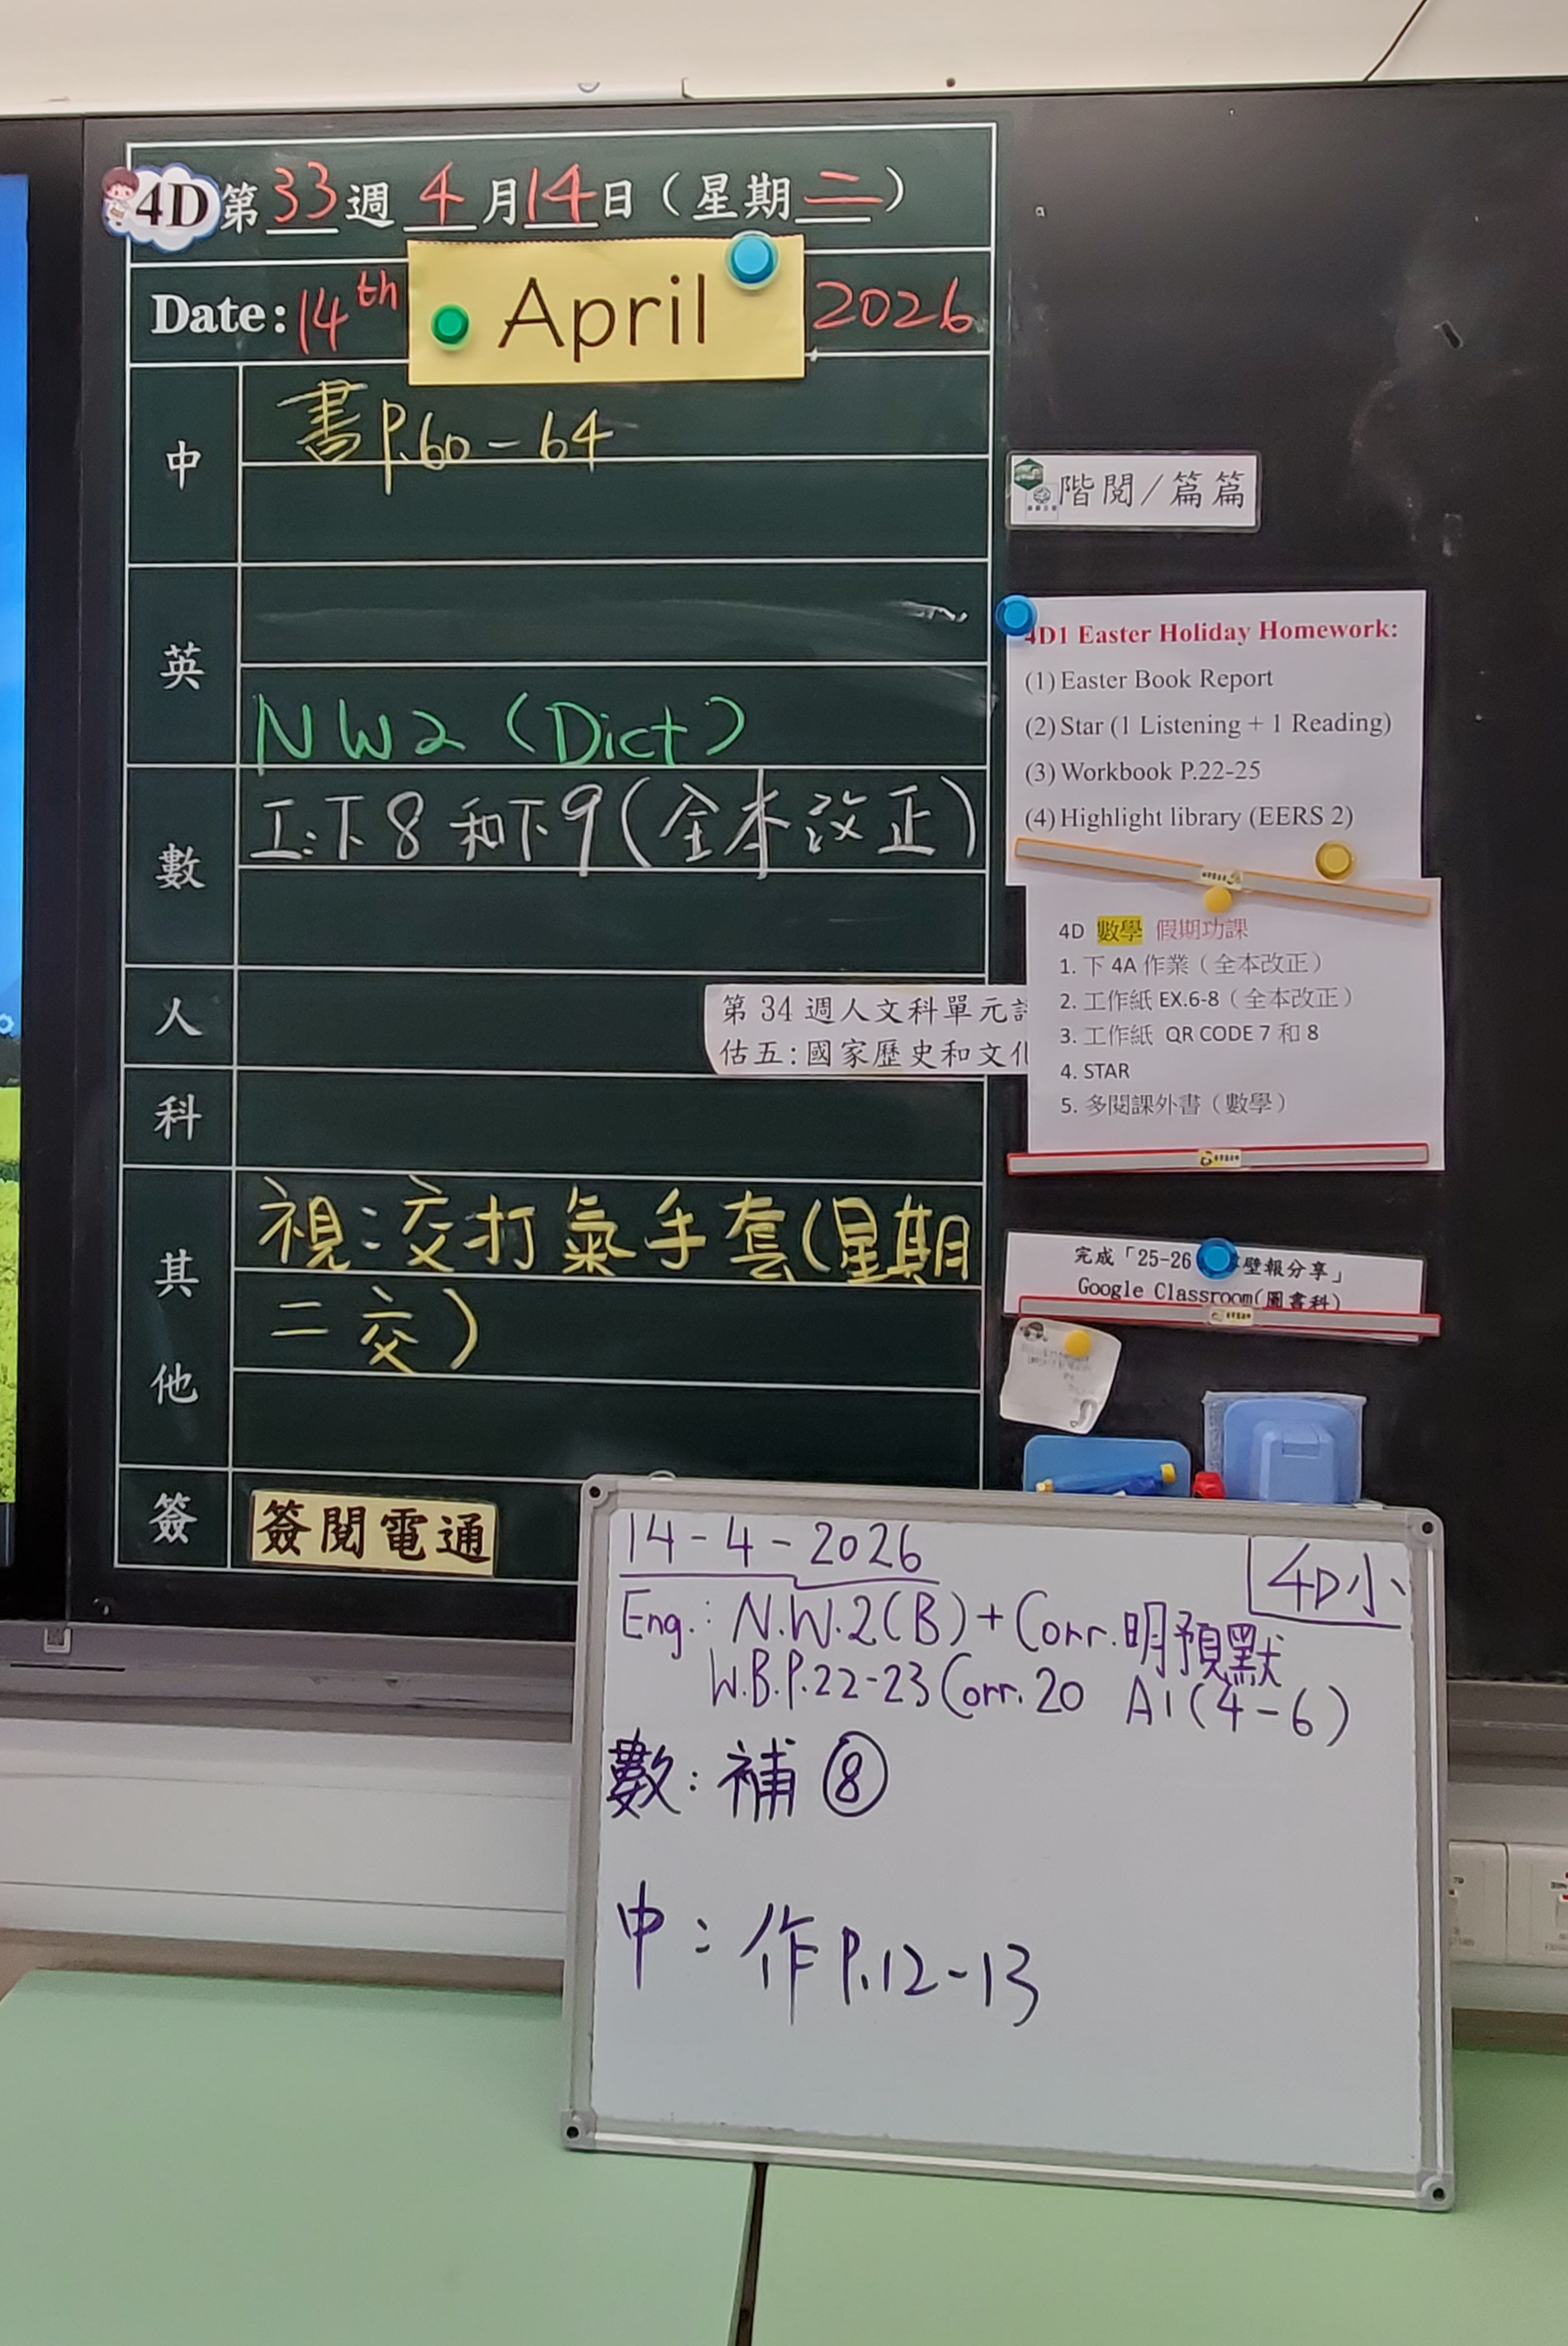 4D 第 33 週 4 月 14 日（星期二）
Date: 14th April 2026
中
書 P.60-64
英
NW2 (Dict)
數
工:下8 和下9(全本改正)
人
第 34 週人文科單元
估五:國家歷史和文
科
其他
視:交打氣手套(星期
二交)
簽
簽閱電通
階閱/篇篇
4D1 Easter Holiday Homework:
(1) Easter Book Report
(2) Star (1 Listening + 1 Reading)
(3) Workbook P.22-25
(4) Highlight library (EERS 2)
4D 數學 假期功課
1. 下 4A 作業（全本改正）
2. 工作紙 EX.6-8（全本改正）
3. 工作紙 QR CODE 7 和 8
4. STAR
5. 多閱課外書（數學）
完成「25-26 壁報分享」
Google Classroom(圖書科)
14-4-2026
4D小
Eng.: N.W.2(B)+Corr.明預默
W.B.P.22-23 Corr.20 A1(4-6)
數:補⑧
中:作P.12-13